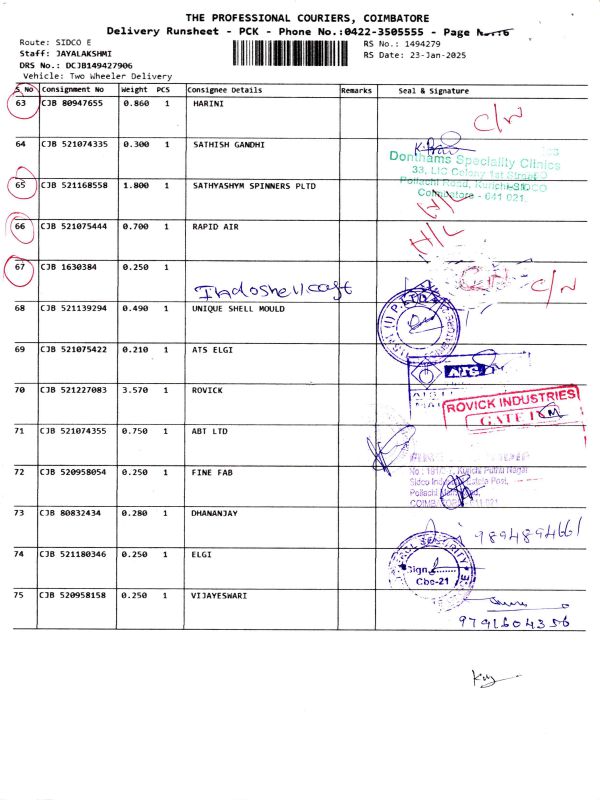 THE PROFESSIONAL COURIERS, COIMBATORE
Delivery Runsheet - PCK - Phone No.:0422-3505555 - Page
Route: SIDCO E
RS No.: 1494279
Staff: JAYALAKSHMI
RS Date: 23-Jan-2025
DRS No.: DCJB149427906
Vehicle: Two Wheeler Delivery
S No Consignment No Weight PCS Consignee Details Remarks Seal & Signature
63 CJB 80947655 0.860 1 HARINI
C/N
64 CJB 521074335 0.300 1 SATHISH GANDHI
Donthams Speciality Clinics
33, LIC Colony 1st Street
Pollachi Road, Kurichi-SIDCO
Coimbatore - 641 021
65 CJB 521168558 1.800 1 SATHYASHYM SPINNERS PLTD
H/L
66 CJB 521075444 0.700 1 RAPID AIR
H/L
67 CJB 1630384 0.250 1
Indoshell cast
C/N
68 CJB 521139294 0.490 1 UNIQUE SHELL MOULD
69 CJB 521075422 0.210 1 ATS ELGI
ATS
70 CJB 521227083 3.570 1 ROVICK
ROVICK INDUSTRIES
71 CJB 521074355 0.750 1 ABT LTD
72 CJB 520958054 0.250 1 FINE FAB
73 CJB 80832434 0.280 1 DHANANJAY
9894894661
74 CJB 521180346 0.250 1 ELGI
SECURITY
Sign
Cbe-21
75 CJB 520958158 0.250 1 VIJAYESWARI
9791604356